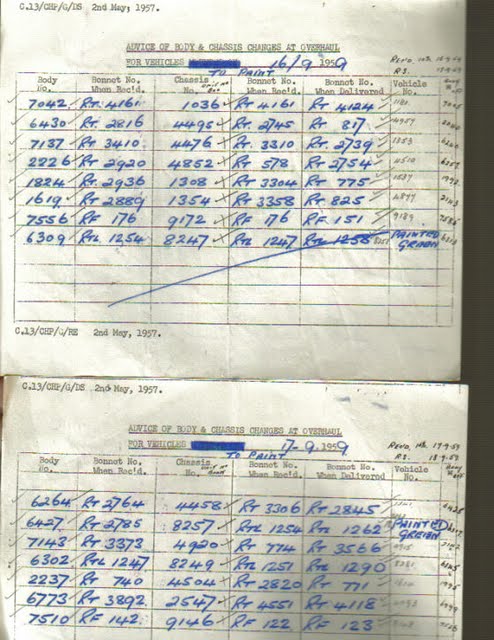 C.13/CHP/G/DS 2nd May, 1957.
ADVICE OF BODY & CHASSIS CHANGES AT OVERHAUL
FOR VEHICLES TO PAINT 16/9 1959
Body No. Bonnet No. When Rec'd. Chassis No. Bonnet No. Bonnet No. When Delivered Vehicle No.
7042 RT 4161 1036 RT 4161 RT 4124 1181
6430 RT 2816 4495 RT 2745 RT 817 4957
7137 RT 3410 4476 RT 3310 RT 2739 1353
2226 RT 2920 4852 RT 578 RT 2754 4510
1824 RT 2936 1308 RT 3304 RT 775 1537
1619 RT 2889 1354 RT 3358 RT 825 4877
7556 RF 176 9172 RF 176 RF 151 9189
6309 RTL 1254 8247 RTL 1247 RTL 1258 PAINTED GREEN
C.13/CHP/G/RE 2nd May, 1957.
C.13/CHP/G/DS 2nd May, 1957.
ADVICE OF BODY & CHASSIS CHANGES AT OVERHAUL
FOR VEHICLES TO PAINT 17-9. 1959
Body No. Bonnet No. When Rec'd. Chassis No. Bonnet No. Bonnet No. When Delivered Vehicle No.
6264 RT 2764 4458 RT 3306 RT 2845
6427 RT 2785 8257 RTL 1254 RTL 1262 PAINTED GREEN
7143 RT 3373 4920 RT 774 RT 3566
6302 RTL 1247 8249 RTL 1251 RTL 1290
2237 RT 740 4504 RT 2820 RT 771
6773 RT 3892 2547 RT 4551 RT 4118
7510 RF 142 9146 RF 122 RF 123